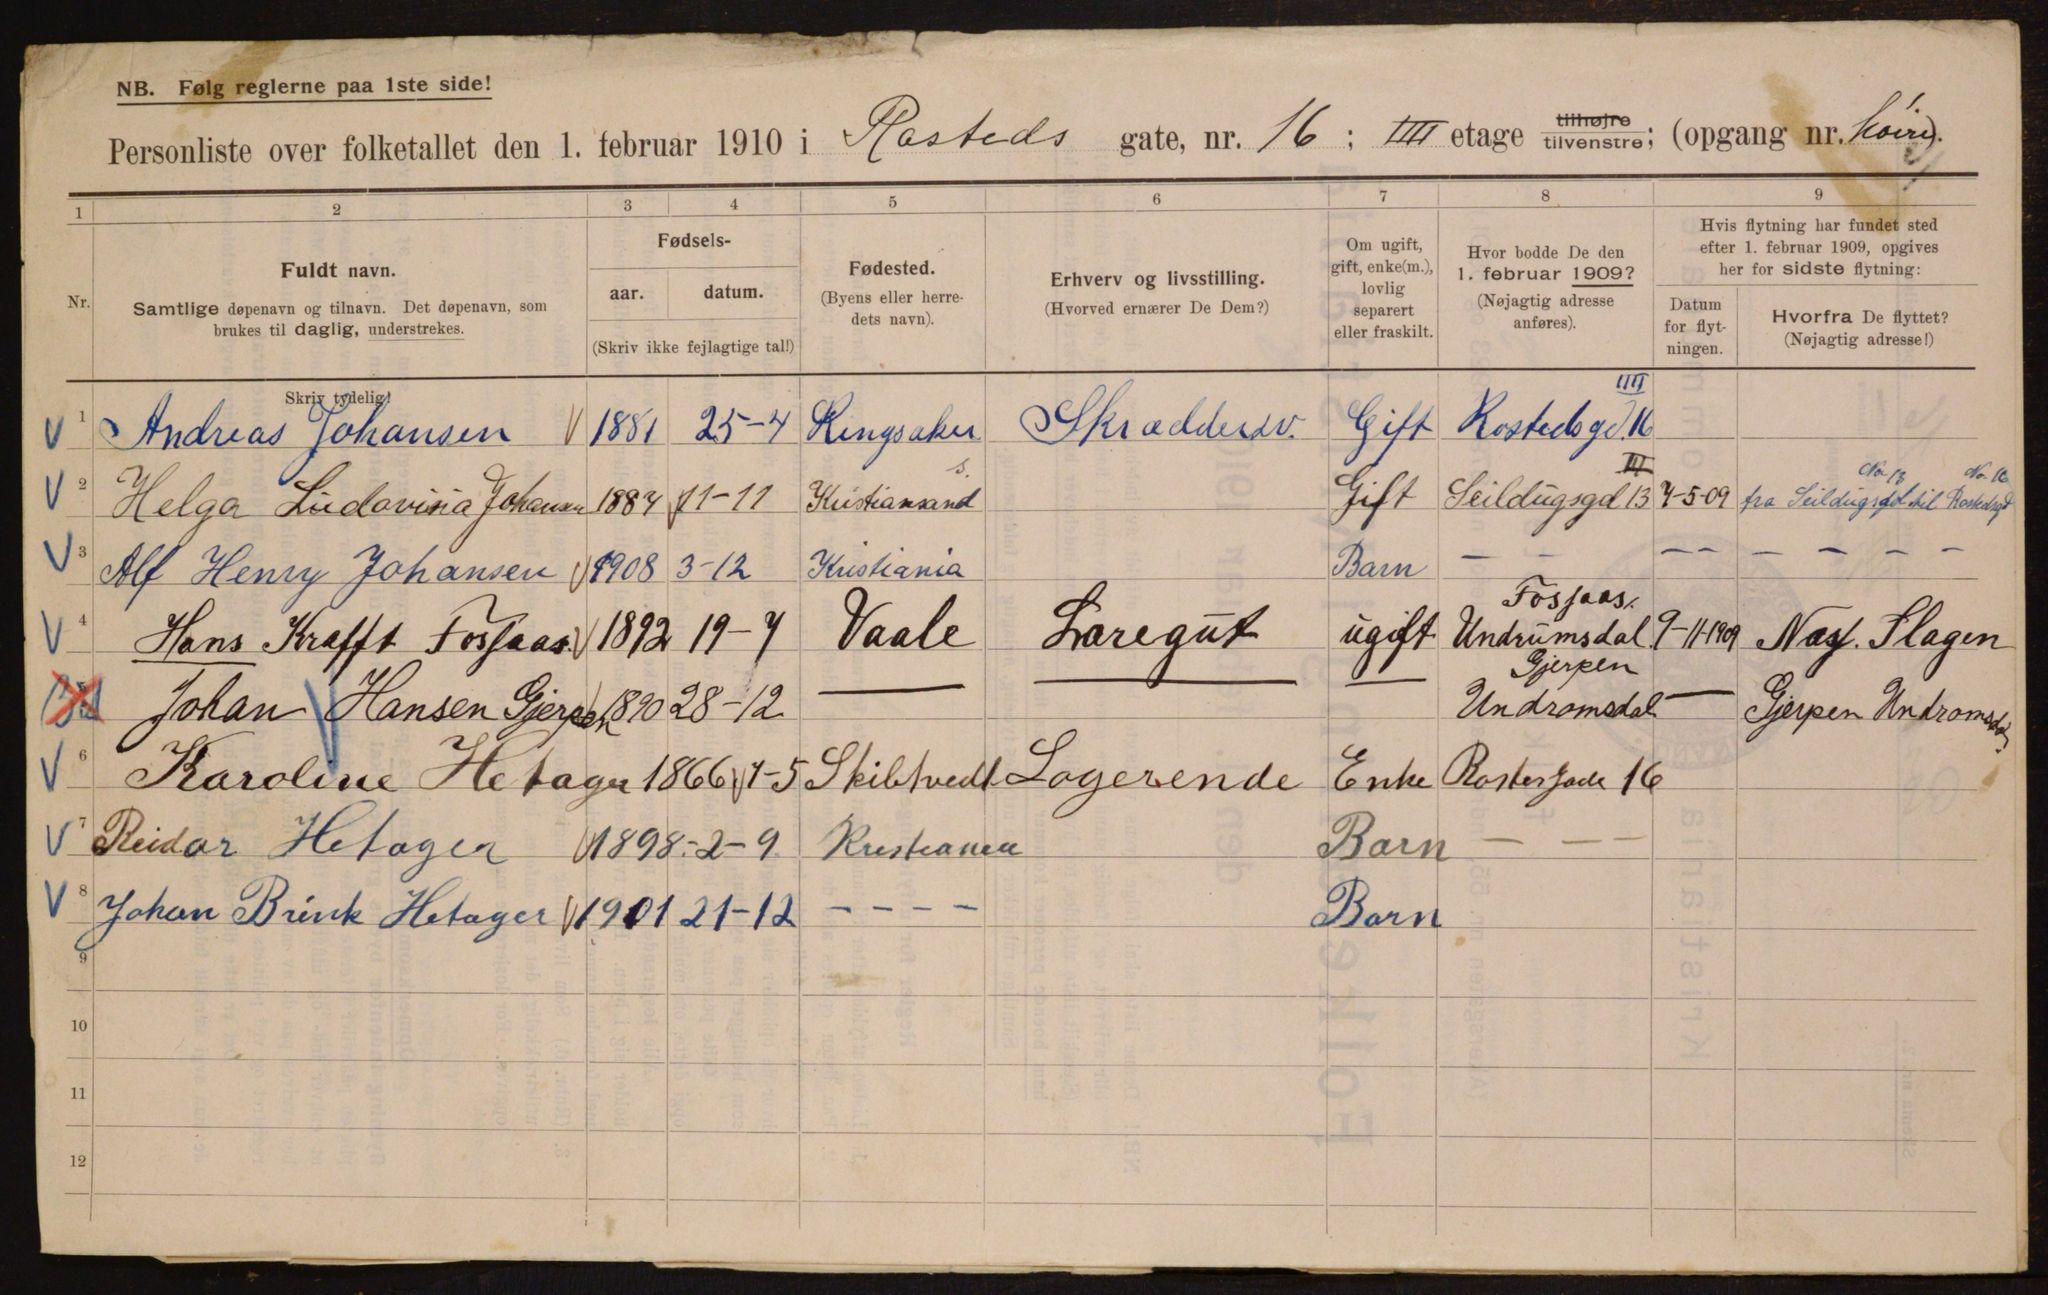 NB. Følg reglerne paa 1ste side!
Personliste over folketallet den 1. februar 1910 i Rosteds gate, nr. 16 ; IIII etage tilhøjre tilvenstre; (opgang nr. høire).
1 2 3 4 5 6 7 8 9
Nr.
Fuldt navn.
Samtlige døpenavn og tilnavn. Det døpenavn, som
brukes til daglig, understrekes.
Fødsels-
aar. datum.
(Skriv ikke fejlagtige tal!)
Fødested.
(Byens eller herre-
dets navn).
Erhverv og livsstilling.
(Hvorved ernærer De Dem?)
Om ugift,
gift, enke(m.),
lovlig
separert
eller fraskilt.
Hvor bodde De den
1. februar 1909?
(Nøjagtig adresse
anføres).
Hvis flytning har fundet sted
efter 1. februar 1909, opgives
her for sidste flytning:
Datum
for flyt-
ningen.
Hvorfra De flyttet?
(Nøjagtig adresse!)
Skriv tydelig!
1 Andreas Johansen 1881 25-4 Ringsaker Skræddersv. Gift Rostedsgd. 16 IIII
2 Helga Ludovina Johansen 1887 11-11 Kristiansand s. Gift Seildugsgd 13 III 7-5-09 fra Seildugsgd No 13 til Rostedsgd No 16
3 Alf Henry Johansen 1908 3-12 Kristiania Barn — — — — — — — —
4 Hans Krafft Fossaas 1892 19-7 Vaale Læregut ugift Fossaas. Undrumsdal 9-11-1909 Næs. Slagen
5 Johan Hansen Gjerpen 1890 28-12 — — — Gjerpen Undromsdal — Gjerpen Undromsdal
6 Karoline Hetager 1866 7-5 Skibtvedt Logerende Enke Rostesgade 16
7 Reidar Hetager 1898 2-9 Kristiania Barn — — —
8 Johan Brink Hetager 1901 21-12 — — — — Barn
9
10
11
12